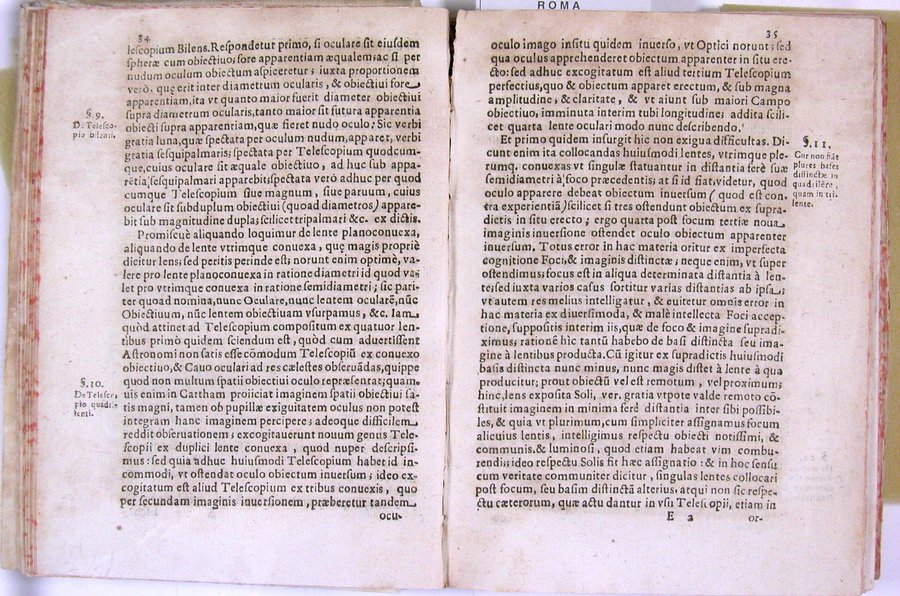 ROMA
34
lescopium Bilens. Respondetur primo, si oculare sit eiusdem
spheræ cum obiectiuo; fore apparentiam æqualem; ac si per
nudum oculum obiectum aspiceretur; iuxta proportionem
verò, quę erit inter diametrum ocularis, & obiectiui fore
apparentiam, ita vt quanto maior fuerit diameter obiectiui
supra diametrum ocularis, tanto maior sit futura apparentia
obiecti supra apparentiam, quæ fieret nudo oculo: Sic verbi
gratia luna, quæ spectata per oculum nudum, apparet, verbi
gratia sesquipalmaris; spectata per Telescopium quodcum-
que, cuius oculare sit æquale obiectiuo, ad huc sub appa-
rẽtia sesquipalmari apparebit; spectata verò adhuc per quod
cumque Telescopium siue magnum, siue paruum, cuius
oculare sit subduplum obiectiui (quoad diametros) appare-
bit sub magnitudine dupla; scilicet tripalmari &c. ex dictis.
Promiscuè aliquando loquimur de lente planoconuexa,
aliquando de lente vtrimque conuexa, quę magis propriè
dicitur lens; sed peritis perinde est; norunt enim optimè, va-
lere pro lente planoconuexa in ratione diametri id quod va-
let pro vtrimque conuexa in ratione semidiametri; sic pari-
ter quoad nomina, nunc Oculare, nunc lentem ocularē, nũc
Obiectiuum, nũc lentem obiectiuam vsurpamus, &c. Iam
quòd attinet ad Telescopium compositum ex quatuor len-
tibus primò quidem sciendum est, quòd cum aduertissent
Astronomi non satis esse cõmodum Telescopiũ ex conuexo
obiectiuo, & Cauo oculari ad res cælestes obseruãdas, quippe
quod non multum spatii obiectiui oculo repræsentat; quam-
uis enim in Cartham proiiciat imaginem spatii obiectiui sa-
tis magni, tamen ob pupillæ exiguitatem oculus non potest
integram hanc imaginem percipere; adeoque difficilem
reddit obseruationem; excogitauerunt nouum genus Tele-
scopii ex duplici lente conuexa, quod nuper descripsi-
mus: sed quia adhuc huiusmodi Telescopium habet id in-
commodi, vt ostendat oculo obiectum inuersum; ideo ex-
cogitatum est aliud Telescopium ex tribus conuexis, quo
per secundam imaginis inuersionem, præberetur tandem
ocu-
§. 9.
D. Telesco-
pio bilenti.
§. 10.
De Telesco-
pio quadri-
lenti.
35
oculo imago in situ quidem inuerso, vt Optici norunt; sed
qua oculus apprehenderet obiectum apparenter in situ ere-
cto: sed adhuc excogitatum est aliud tertium Telescopium
perfectius, quo & obiectum apparet erectum, & sub magna
amplitudine, & claritate, & vt aiunt sub maiori Campo
obiectiuo, imminuta interim tubi longitudine; addita scili-
cet quarta lente oculari modo nunc describendo.
Et primo quidem insurgit hic non exigua difficultas. Di-
cunt enim ita collocandas huiusmodi lentes, vtrimque ple-
rumq. conuexas vt singulæ statuantur in distantia ferè suæ
semidiametri à foco præcedentis at si id fiat, videtur, quod
oculo apparere debeat obiectum inuersum (quod est con-
tra experientiã) scilicet si tres ostendunt obiectum ex supra-
dictis in situ erecto; ergo quarta post focum tertiæ noua
imaginis inuersione ostendet oculo obiectum apparenter
inuersum. Totus error in hac materia oritur ex imperfecta
cognitione Foci, & imaginis distinctæ; neque enim, vt super
ostendimus; focus est in aliqua determinata distantia à len-
te; sed iuxta varios casus sortitur varias distantias ab ipsa;
vt autem res melius intelligatur, & euitetur omnis error in
hac materia ex diuersimoda, & malè intellecta Foci accep-
tione, suppositis interim iis, quæ de foco & imagine supradi-
ximus; rationē hìc tantũ habebo de basi distincta seu ima-
gine à lentibus producta. Cũ igitur ex supradictis huiusmodi
basis distincta nunc minus, nunc magis distet à lente à qua
producitur; prout obiectũ vel est remotum, vel proximum;
hinc, lens exposita Soli, ver. gratia vt pote valde remoto cõ-
stituit imaginem in minima ferè distantia inter sibi possibi-
les, & quia vt plurimum, cum simpliciter assignamus focum
alicuius lentis, intelligimus respectu obiecti notissimi, &
communis, & luminosi, quod etiam habeat vim combu-
rendi; ideo respectu Solis fit hæc assignatio: & in hoc sensu
cum veritate communiter dicitur, singulas lentes collocari
post focum, seu basim distinctã alterius, atqui non sic respe-
ctu cæterorum, quæ actu dantur in vsu Telescopii, etiam in
E 2
or-
§. 11.
Cur non fiãt
plures bases
distinctæ in
quadrilẽte,
quam in tri-
lente.